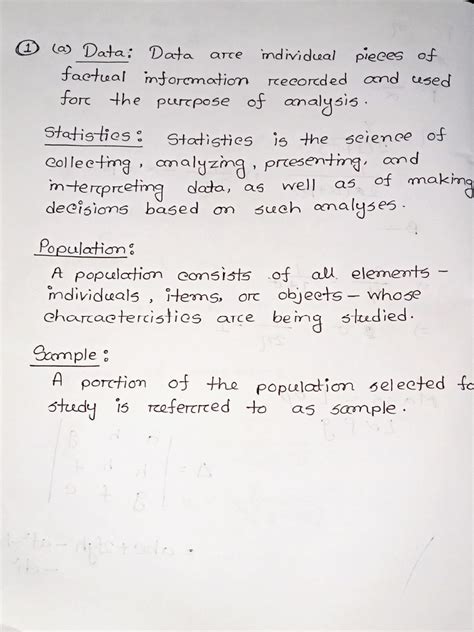 ① (a) Data: Data are individual pieces of
factual information recorded and used
for the purpose of analysis.
Statistics: Statistics is the science of
collecting, analyzing, presenting, and
interpreting data, as well as of making
decisions based on such analyses.
Population:
A population consists of all elements –
individuals, items, or objects – whose
characteristics are being studied.
Sample:
A portion of the population selected fo
study is referred to as sample.